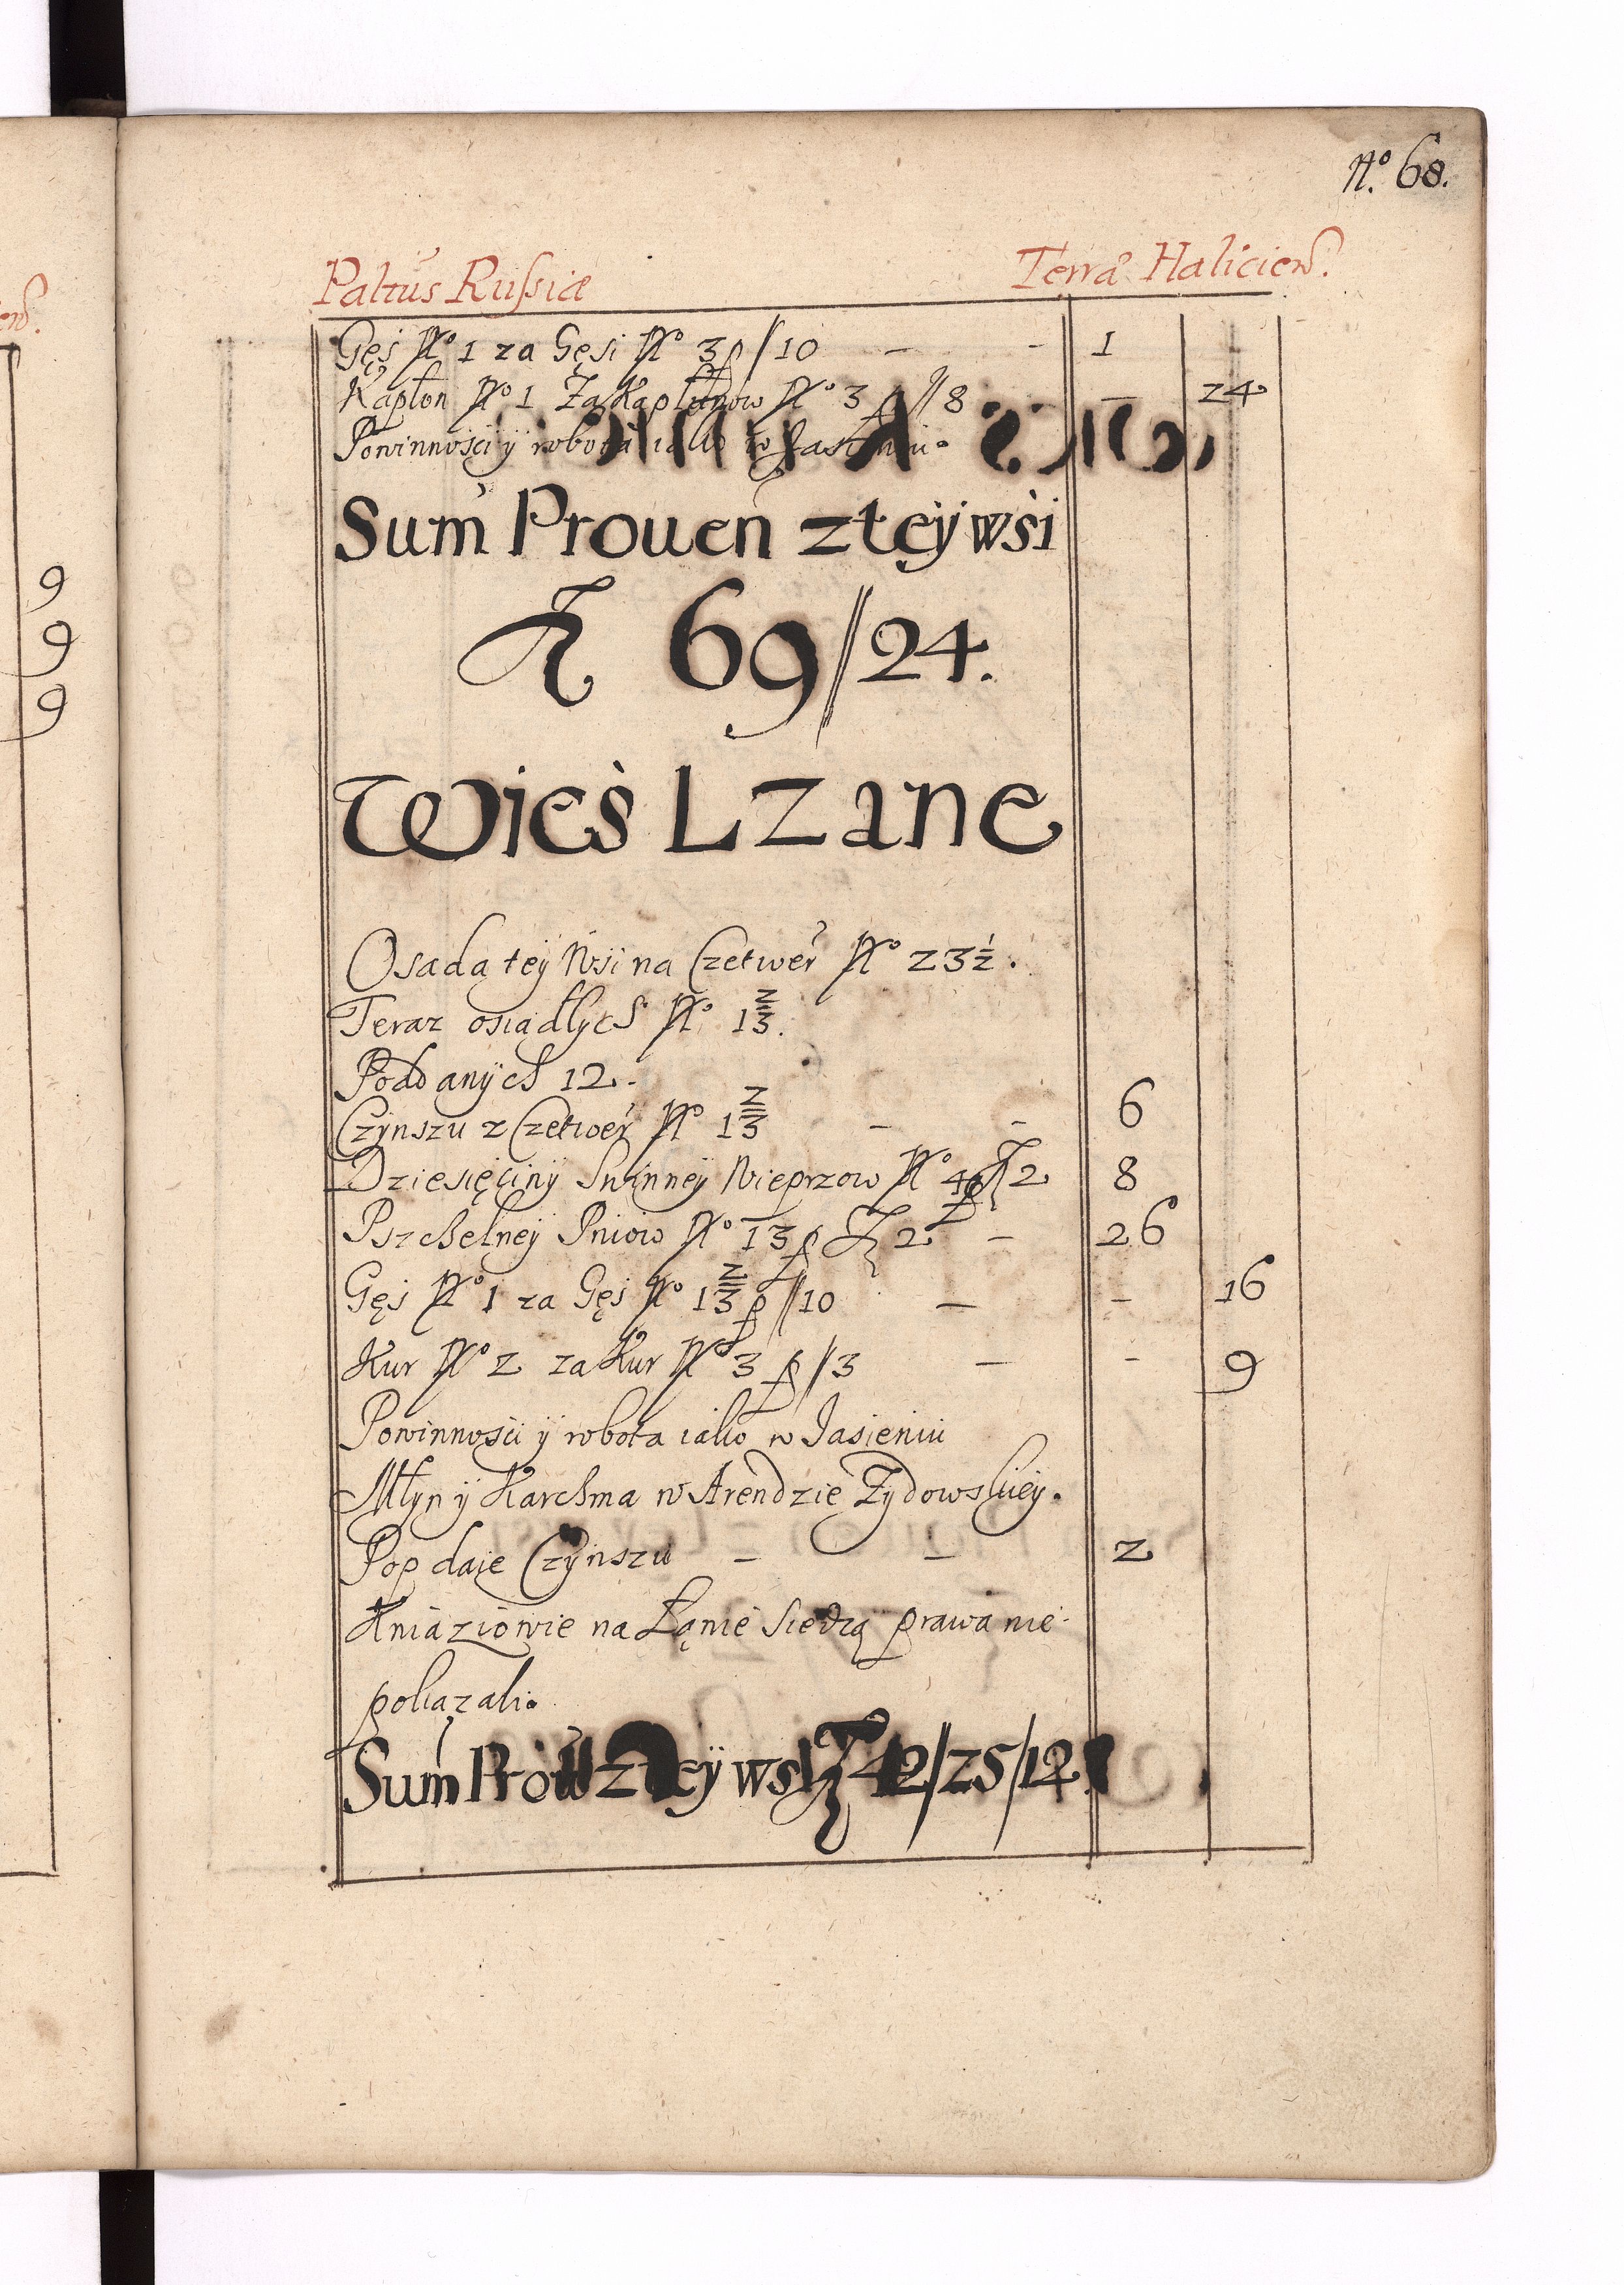 No. 68.
Paltus Russiæ Terra Halicien.
Gęś No 1 za Gęsi No 3 p // 10 — - 1
Kapłon No 1 Za Kapłunow No 3 p // 8 — 24
Powinnośći ÿ robota iako w Jasieniu.
Sum Prouen z teÿ wśi
fl 69 // 24.
Wieś Lzane
Osada teÿ Wsi na Czetwer No 23 1/2.
Teraz osiadłych No 1 2/3.
Poddanÿch 12.
Czÿnszu z Czetwer No 1 2/3 — - 6
Dziesięćinÿ Swinneÿ Wieprzow No 4 p fl 2 8
Pszchelneÿ Pniow No 13 p fl 2 — 26
Gęś No 1 za Gęś No 1 2/3 p // 10 — - 16
Kur No 2 za Kur No 3 p // 3 — - 9
Powinnośći ÿ robota iako w Jasieniu
Młyn ÿ Karchma w Arendzie Zydowskieÿ.
Pop daie Czÿnszu — — 2
Kniaziowie na Łanie siedzą prawa nie
pokazali.
Sum Prou z teÿ wsi fl 42/25/12
9
9
9